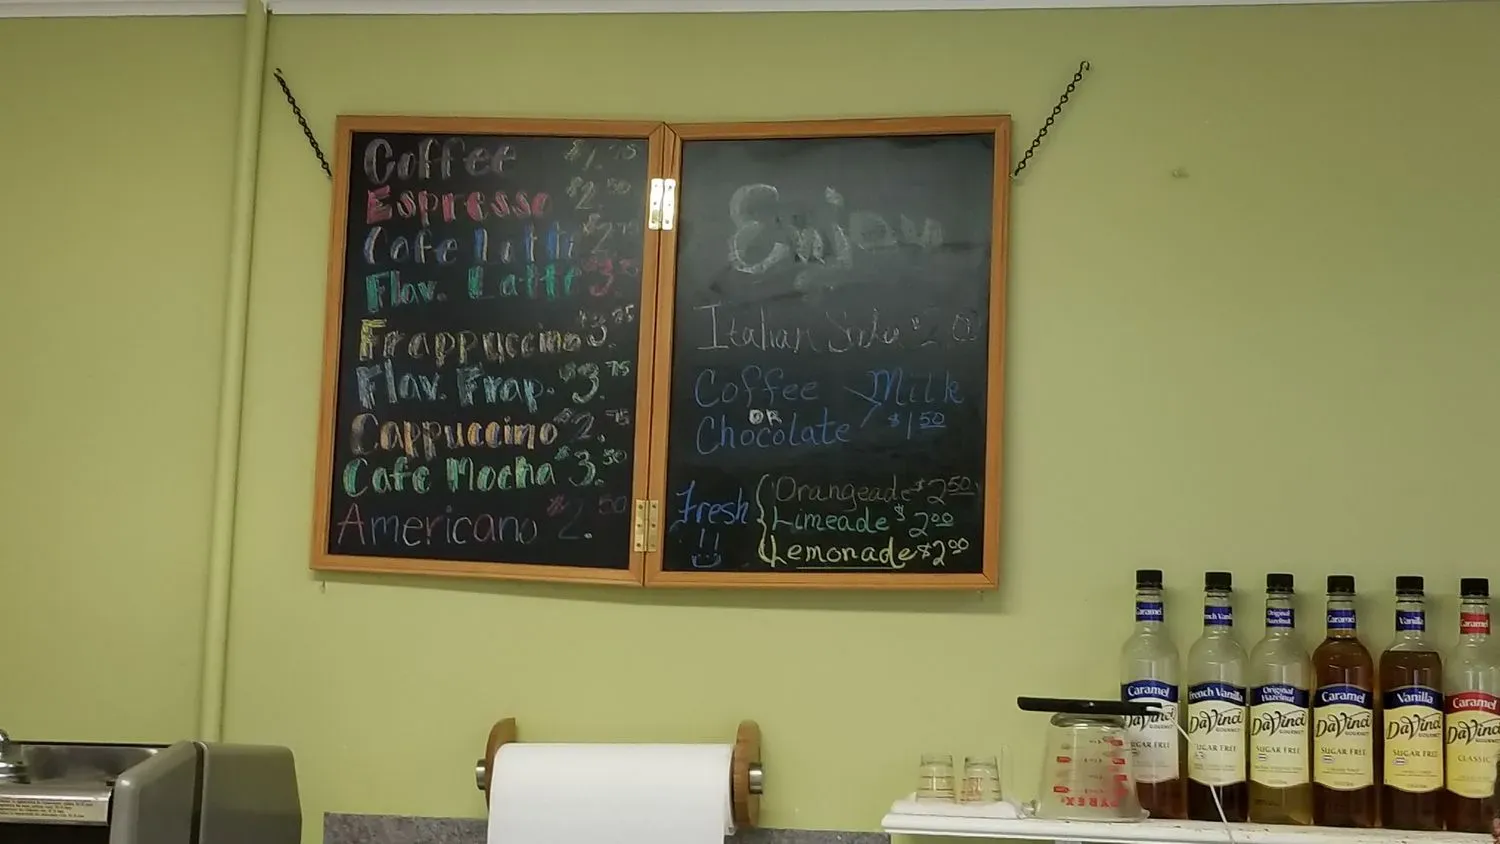 Coffee $1.75
Espresso $2.50
Cafe Latte $2.75
Flav. Latte $3.
Frappuccino $3.25
Flav. Frap. $3.75
Cappuccino $2.75
Cafe Mocha $3.50
Americano $2.50
Enjoy
Italian Soda $2.
Coffee
OR
Chocolate
Milk
$1.50
Fresh
Orangeade $2.50
Limeade $2.00
Lemonade $2.00
Caramel
French Vanilla
Original Hazelnut
Caramel
Vanilla
Caramel
Caramel
DaVinci
SUGAR FREE
French Vanilla
DaVinci
GOURMET
SUGAR FREE
Original
Hazelnut
DaVinci
GOURMET
SUGAR FREE
Caramel
DaVinci
GOURMET
SUGAR FREE
Vanilla
DaVinci
GOURMET
SUGAR FREE
Caramel
DaVinci
CLASSIC
PYREX